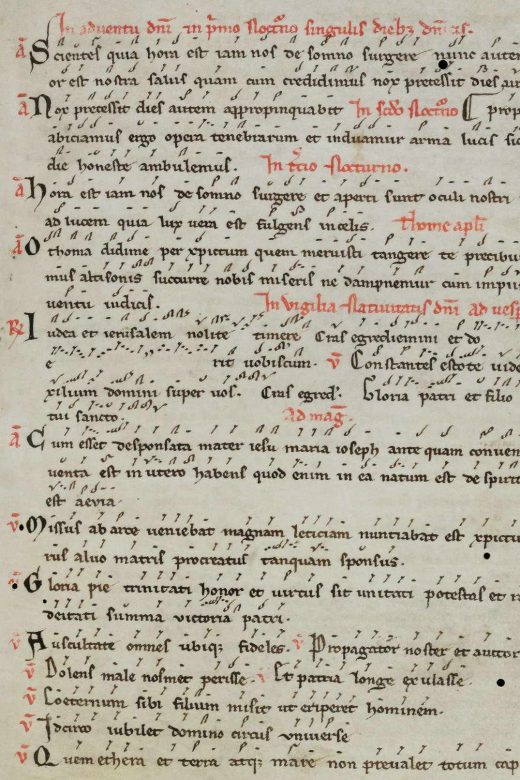 In adventu dñi in p̃mo Noct̃no singulis dieb; dñicis.
ã Scientes quia hora est iam nos de somno surgere nunc autem
or est nostra salus quam cum credidimus nox precessit dies au
ã Nox precessit dies autem appropinquabit In scd̃o Noct̃no prop
abiciamus ergo opera tenebrarum et induamur arma lucis sic
die honeste ambulemus. In t̃cio Nocturno.
ã hora est iam nos de somno surgere et aperti sunt oculi nostri
ad lucem quia lux vera est fulgens in celis. Thome apłi
ã O thoma didime per xpictum quem meruisti tangere te precibus
mus altisonis succurre nobis miseris ne dampnemur cum impiis
ventu iudicis. In vigilia Nativitatis dñi ad vesp
R̃ Iudea et ierusalem nolite timere Cras egrediemini et do
e rit vobiscum. v̄ Constantes estote vide
xilium domini super vos. Cras egred̃. Gloria patri et filio
tui sancto. Ad mag̃
ã Cum esset desponsata mater iesu maria ioseph ante quam conven
venta est in utero habens quod enim in ea natum est de spirit
est aevia.
v̄ Missus ab arce veniebat magnam leticiam nuntiabat est xpictu
rus alvo matris procreatus tanquam sponsus.
Gloria pie trinitati honor et virtus sit unitati potestas et r
deitati summa victoria patri.
v̄ Auscultate omnes ubiq; fideles. v̄ Propagator noster et auctor
v̄ Dolens male nosmet perisse. v̄ Et patria longe exulasse.
v̄ Coeternum sibi filium misit ut eriperet hominem.
v̄ Idcirco iubilet domino universe
v̄ Quem ethera et terra atq; mare non prevalet totum cap